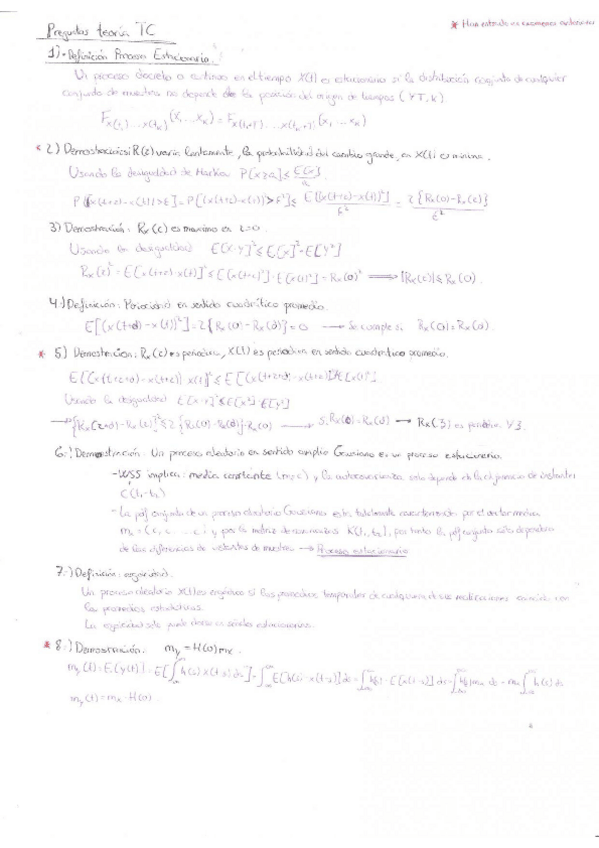 Preguntas teoría TC
* Han entrado en exámenes anteriores
1) - Definición Proceso Estacionario.
Un proceso discreto o continuo en el tiempo X(t) es estacionario si la distribución conjunta de cualquier
conjunto de muestras no depende de la posición del origen de tiempos (∀T, k).
F x(t₁)...x(tₖ) (x₁, ... xₖ) = F x(t₁+T)...x(tₖ+T) (x₁ ... xₖ)
* 2) Demostración: si R(z) varía lentamente, la probabilidad del cambio grande, en X(t) es mínima.
Usando la desigualdad de Markov P[x≥a] ≤ E[x]/a
P[|x(t+z)-x(t)| > E] = P[(x(t+z)-x(t))² > E²] ≤ E[(x(t+z)-x(t))²]/E² = 2{Rx(0)-Rx(z)}/E²
3) Demostración: Rx(z) es máximo en z=0.
Usando la desigualdad E[x·y]² ≤ E[x²]·E[y²]
Rx(z)² = E[x(t+z)·x(t)]² ≤ E[x(t+z)²]·E[x(t)²] = Rx(0)² ⟹ |Rx(z)| ≤ Rx(0).
4) Definición: Periocidad en sentido cuadrático promedio.
E[(x(t+d)-x(t))²] = 2{Rx(0)-Rx(d)} = 0 → Se cumple si Rx(0) = Rx(d).
* 5) Demostración: Rx(z) es periódica, X(t) es periódica en sentido cuadrático promedio.
E{(x(t+z+d)-x(t+z)) x(t)}² ≤ E[(x(t+z+d)-x(t+z))²]E[x(t)²].
Usando la desigualdad E[x·y]² ≤ E[x²]·E[y²]
→ {Rx(z+d)-Rx(z)}² ≤ 2{Rx(0)-Rx(d)}·Rx(0) → si Rx(0)=Rx(d) → Rx(z) es periódica
6) Demostración: Un proceso aleatorio en sentido amplio Gaussiano es un proceso estacionario.
- WSS implica: media constante (mx=c) y la autocovarianza solo depende de la diferencia de instantes
C(t₁-t₂)
- La pdf conjunta de un proceso aleatorio Gaussiano está totalmente caracterizado por el vector media
mx = (c, c ... c) y por la matriz de covarianza K(t₁,t₂), por tanto la pdf conjunta sólo dependerá
de las diferencias de instantes de muestra → Proceso estacionario
7) Definición: ergodicidad.
Un proceso aleatorio X(t) es ergódico si los promedios temporales de cualquiera de sus realizaciones coincide con
los promedios estadísticos.
La ergodicidad sólo puede darse en señales estacionarias.
* 8) Demostración: my = H(0)mx
my(t) = E(y(t)) = E[∫h(z)x(t-z)dz] = ∫E[h(z)·x(t-z)]dz = ∫h(z)·E[x(t-z)]dz = ∫h(z)mx dz = mx∫h(z)dz
my(t) = mx·H(0).